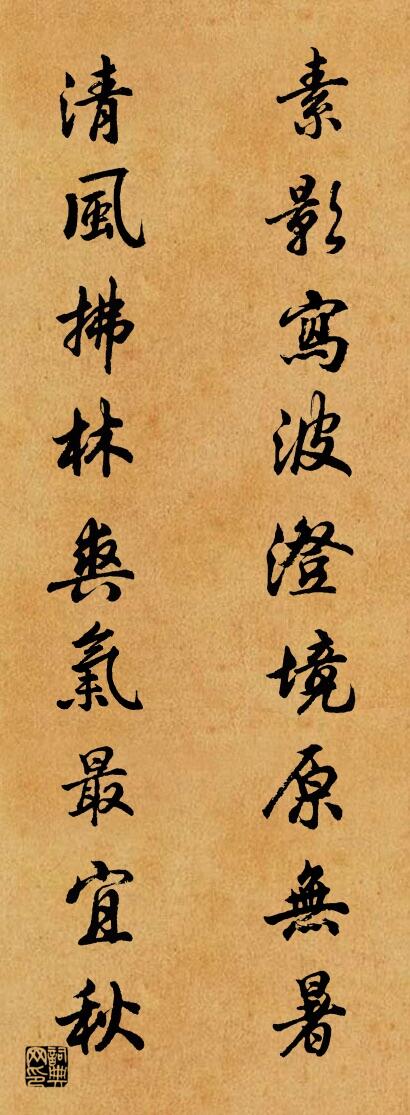 素影寫波澄境原無暑
清風拂林爽氣最宜秋
詞典網印